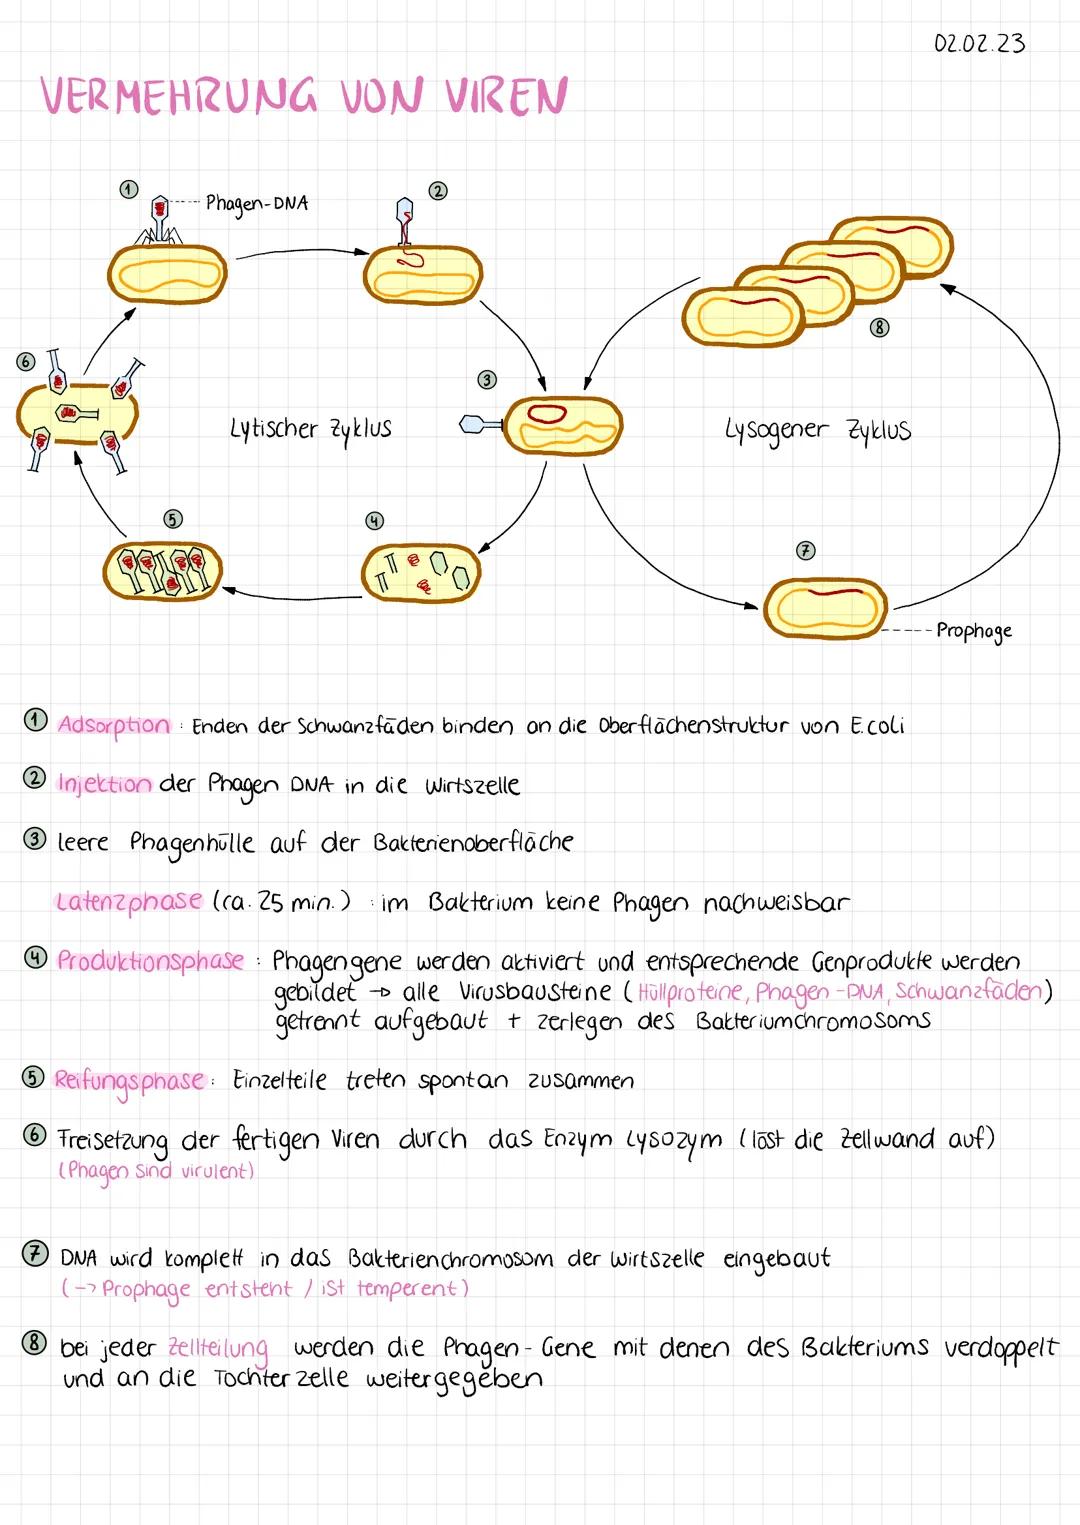 02.02.23
VERMEHRUNG VON VIREN
1
Phagen-DNA
2
8
6
3
Lytischer Zyklus
Lysogener Zyklus
5
4
7
Prophage
1 Adsorption : Enden der Schwanzfäden binden an die Oberflächenstruktur von E.coli
2 Injektion der Phagen DNA in die Wirtszelle
3 leere Phagenhülle auf der Bakterienoberfläche
Latenzphase (ca. 25 min.) : im Bakterium keine Phagen nachweisbar
4 Produktionsphase : Phagengene werden aktiviert und entsprechende Genprodukte werden
gebildet → alle Virusbausteine (Hüllproteine, Phagen-DNA, Schwanzfäden)
getrennt aufgebaut + zerlegen des Bakteriumchromosoms
5 Reifungsphase : Einzelteile treten spontan zusammen
6 Freisetzung der fertigen Viren durch das Enzym Lysozym (löst die Zellwand auf)
(Phagen sind virulent)
7 DNA wird komplett in das Bakterienchromosom der Wirtszelle eingebaut
(→ Prophage entsteht / ist temperent)
8 bei jeder Zellteilung werden die Phagen-Gene mit denen des Bakteriums verdoppelt
und an die Tochterzelle weitergegeben